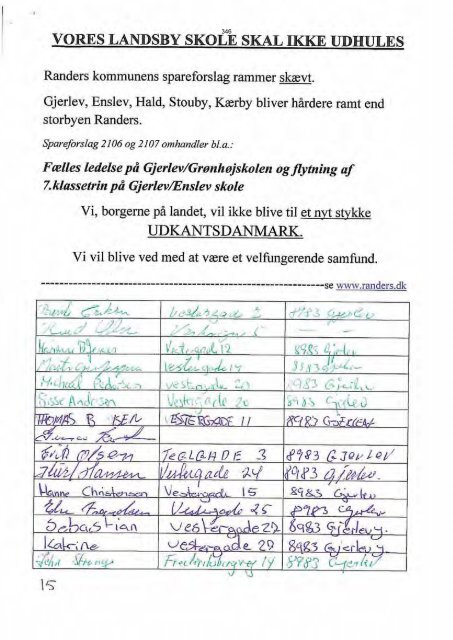 346
VORES LANDSBY SKOLE SKAL IKKE UDHULES
Randers kommunens spareforslag rammer skævt.
Gjerlev, Enslev, Hald, Stouby, Kærby bliver hårdere ramt end
storbyen Randers.
Spareforslag 2106 og 2107 omhandler bl.a.:
Fælles ledelse på Gjerlev/Grønhøjskolen og flytning af
7.klassetrin på Gjerlev/Enslev skole
Vi, borgerne på landet, vil ikke blive til et nyt stykke
UDKANTSDANMARK.
Vi vil blive ved med at være et velfungerende samfund.
se www.randers.dk
Vestergade 2 8983 Gjerlev
Knud
Vestergade 12 8983 Gjerlev
Vestergade 8983
Michael Pedersen Vestergade 20 8983
Sisse Andersen Vestergade 20 8983 Gjerlev
THOMAS B VESTERGADE 11 8983 GJERLEV
Erik Olsen TEGLGADE 3 8983 GJERLEV
Hansen Vestergade 24 8983 Gjerlev.
Hanne Christensen Vestergade 15 8983 Gjerlev
Vestergade 25 8983 Gjerlev
Sebastian Vestergade 22 8983 Gjerlev J.
Katrine Vestergade 29 8983 Gjerlev J.
John 14 8983 Gjerlev
15